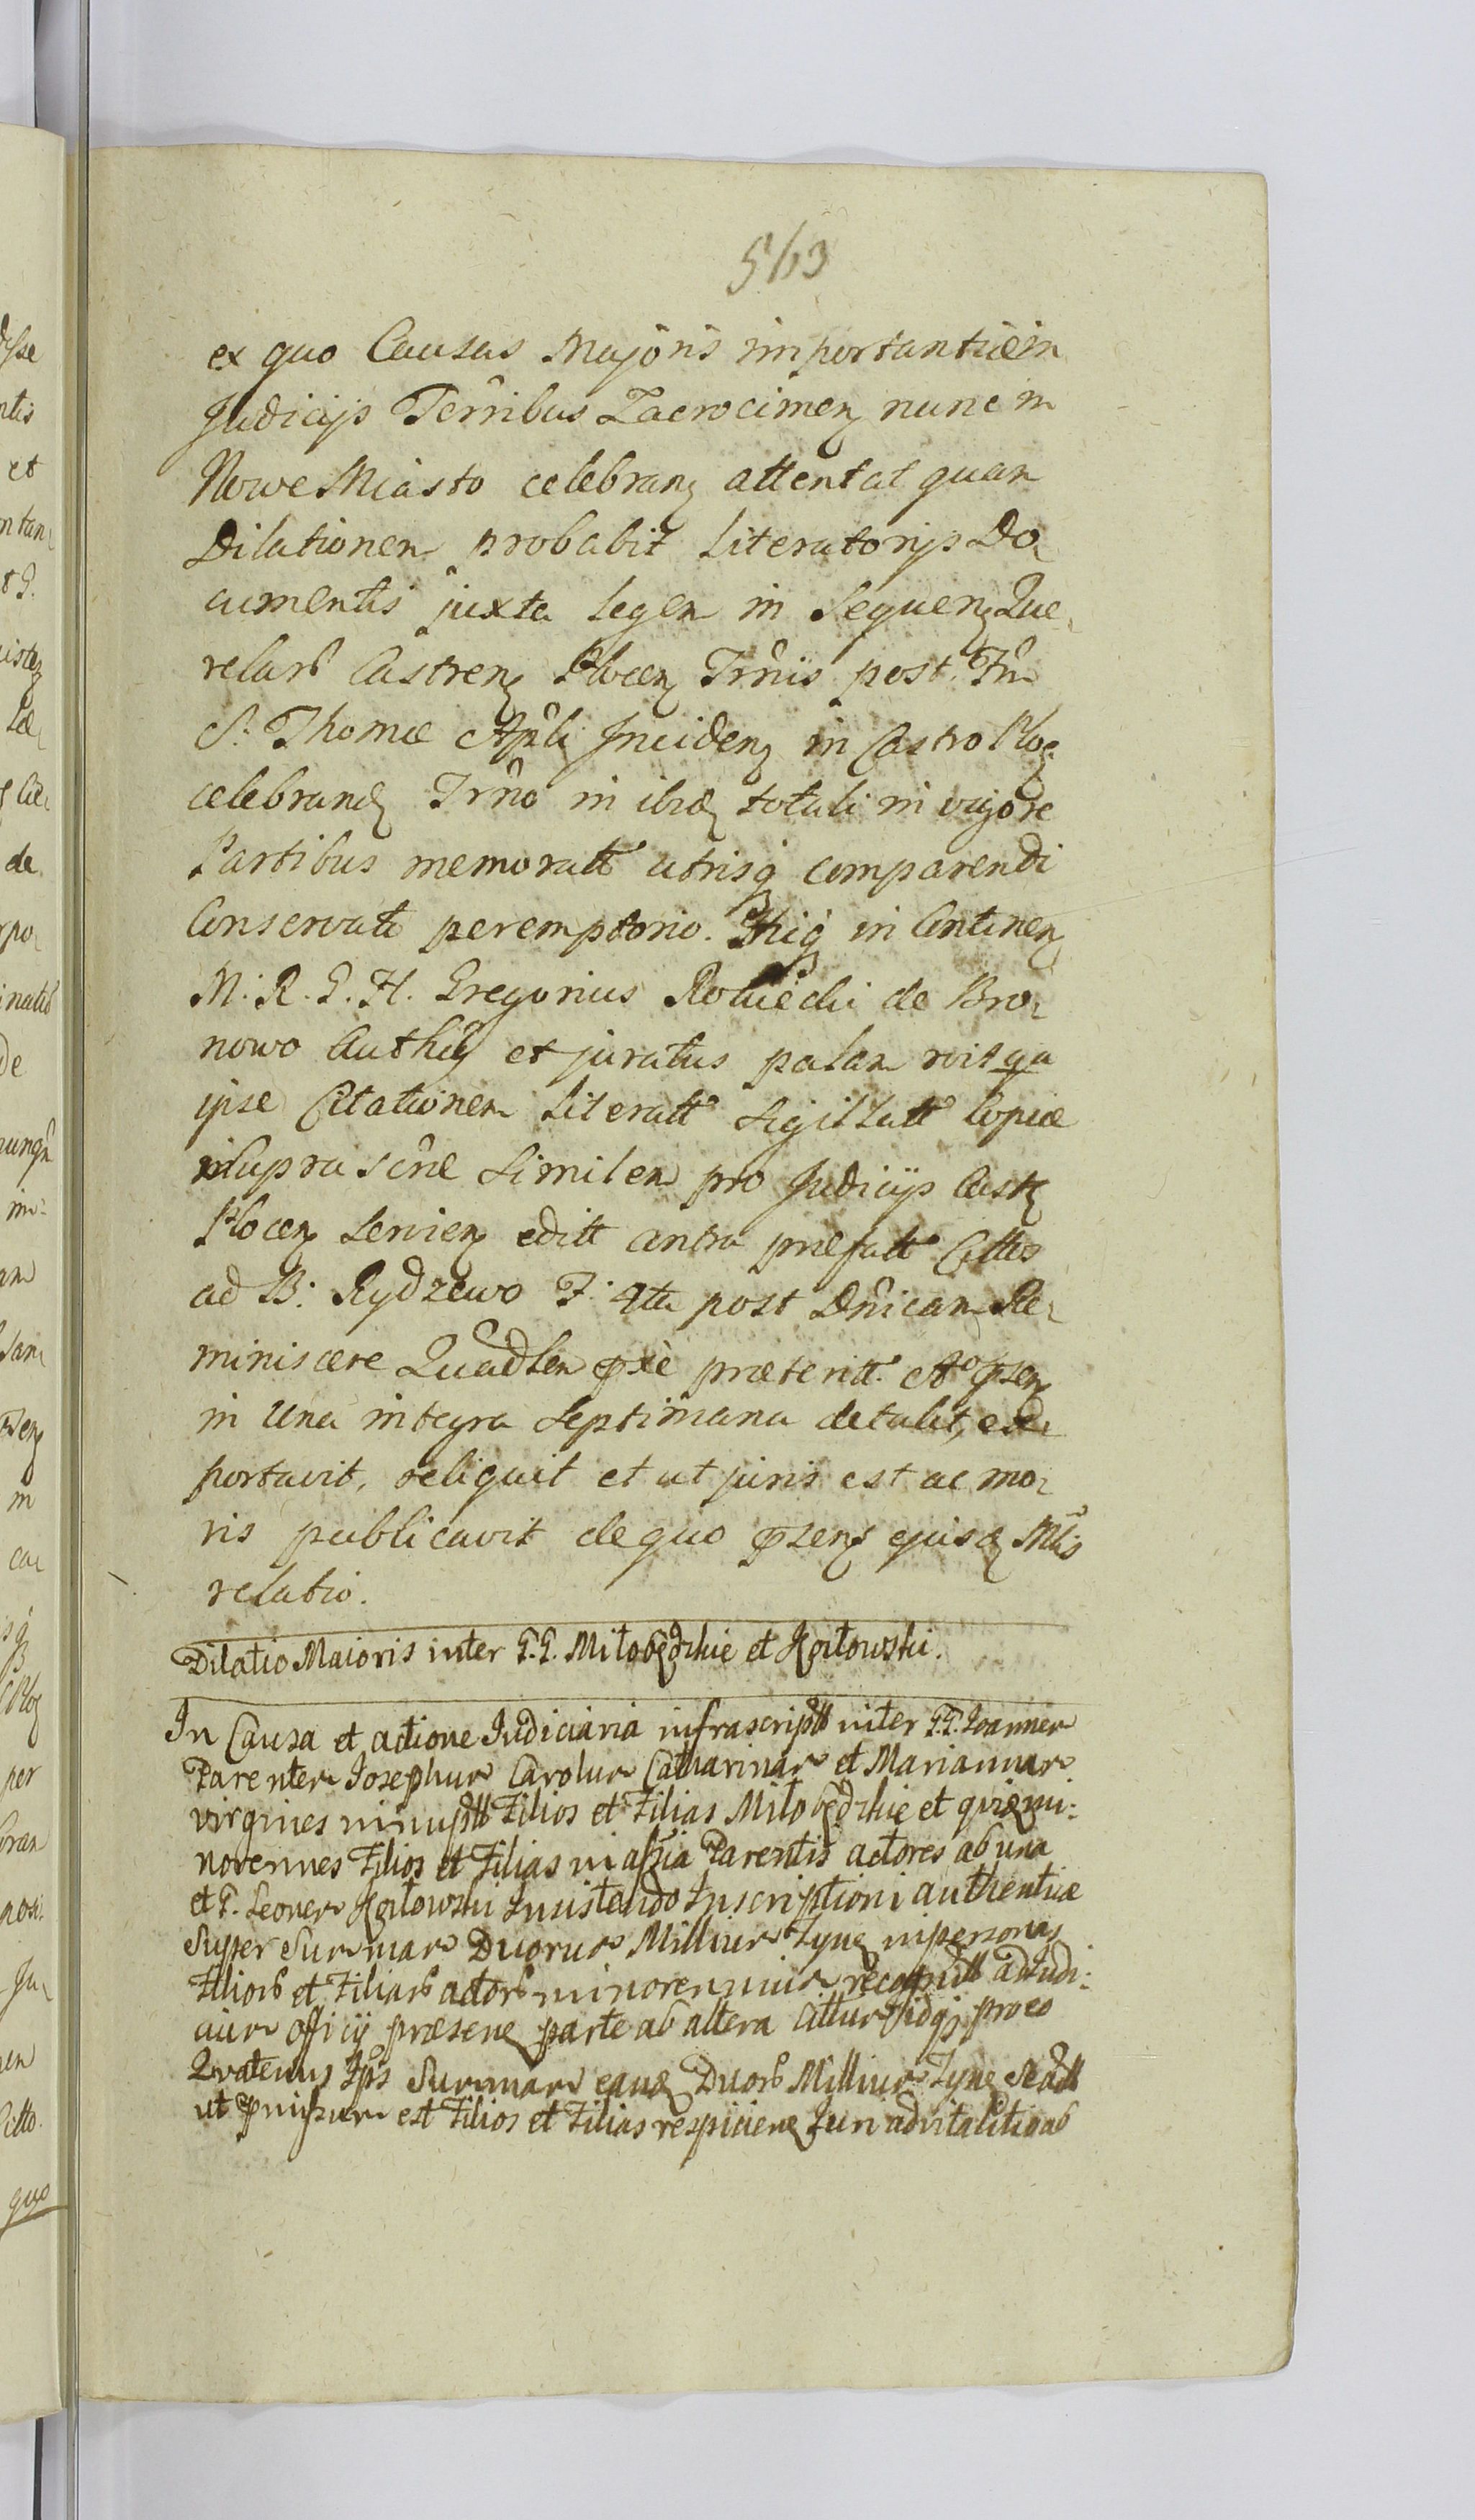 563
ex quo Causas Majoris importantiæ in
Judicijs Terribus Zacrocimen nunc in
Nowe Miasto celebran attentat quam
Dilationem probabit Literatorijs Do
cumentis juxta legem in Sequen Que
relarb Castren Plocen Trnis post Fm
S: Thomæ Apli Inciden in Castro Ploc
celebrand Trno in ibid totali in vigore
Partibus memoratt utrisq comparendi
Conservato peremptorio. Hicq in Continen
M: R. G. H. Gregorius de Bro
nowo Authen et juratus palam rvit qa
ipse Citationem Literatt Sigillatt Copiæ
Supra scrie Similem pro Judicijs Castr
Plocen Servien editt contra præfatt Cittos
ad B: Rydzewo F: 4ta post Dnicam Re
miniscere Quadlem pxe præteritt Ao psen
in Una integra Septimana detulit,
portavit, reliquit et ut juris est ac mo
ris publicavit de quo psens ejusd Mlis
relatio.
Dilatio Maioris inter G.G. Miłobędzkie et Kozłowski.
In Causa et actione Judiciaria infrascriptt inter G.G. Joannem
Parentem Josephum Carolum Catharinam et Mariannam
virgines innuptt Filios et Filias Miłobędzkie et quidem mi:
norennes Filios et Filias in assia Parentis actores ab una
et G. Leonem Kozłowski Insistendo Inscriptioni authenticæ
Super Summam Duorum Millium Tyne in personas
Filiorb et Filiarb actorb minorennium adjudi:
cium officij præsene parte ab altera Cittum idq pro eo
Quatenus Ipse Summam eand Duorb Millium Tyne
ut pmissum est Filios et Filias respiciene Juri advitalitio ab